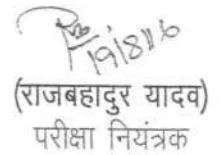 19/8/16
(राजबहादुर यादव)
परीक्षा नियंत्रक